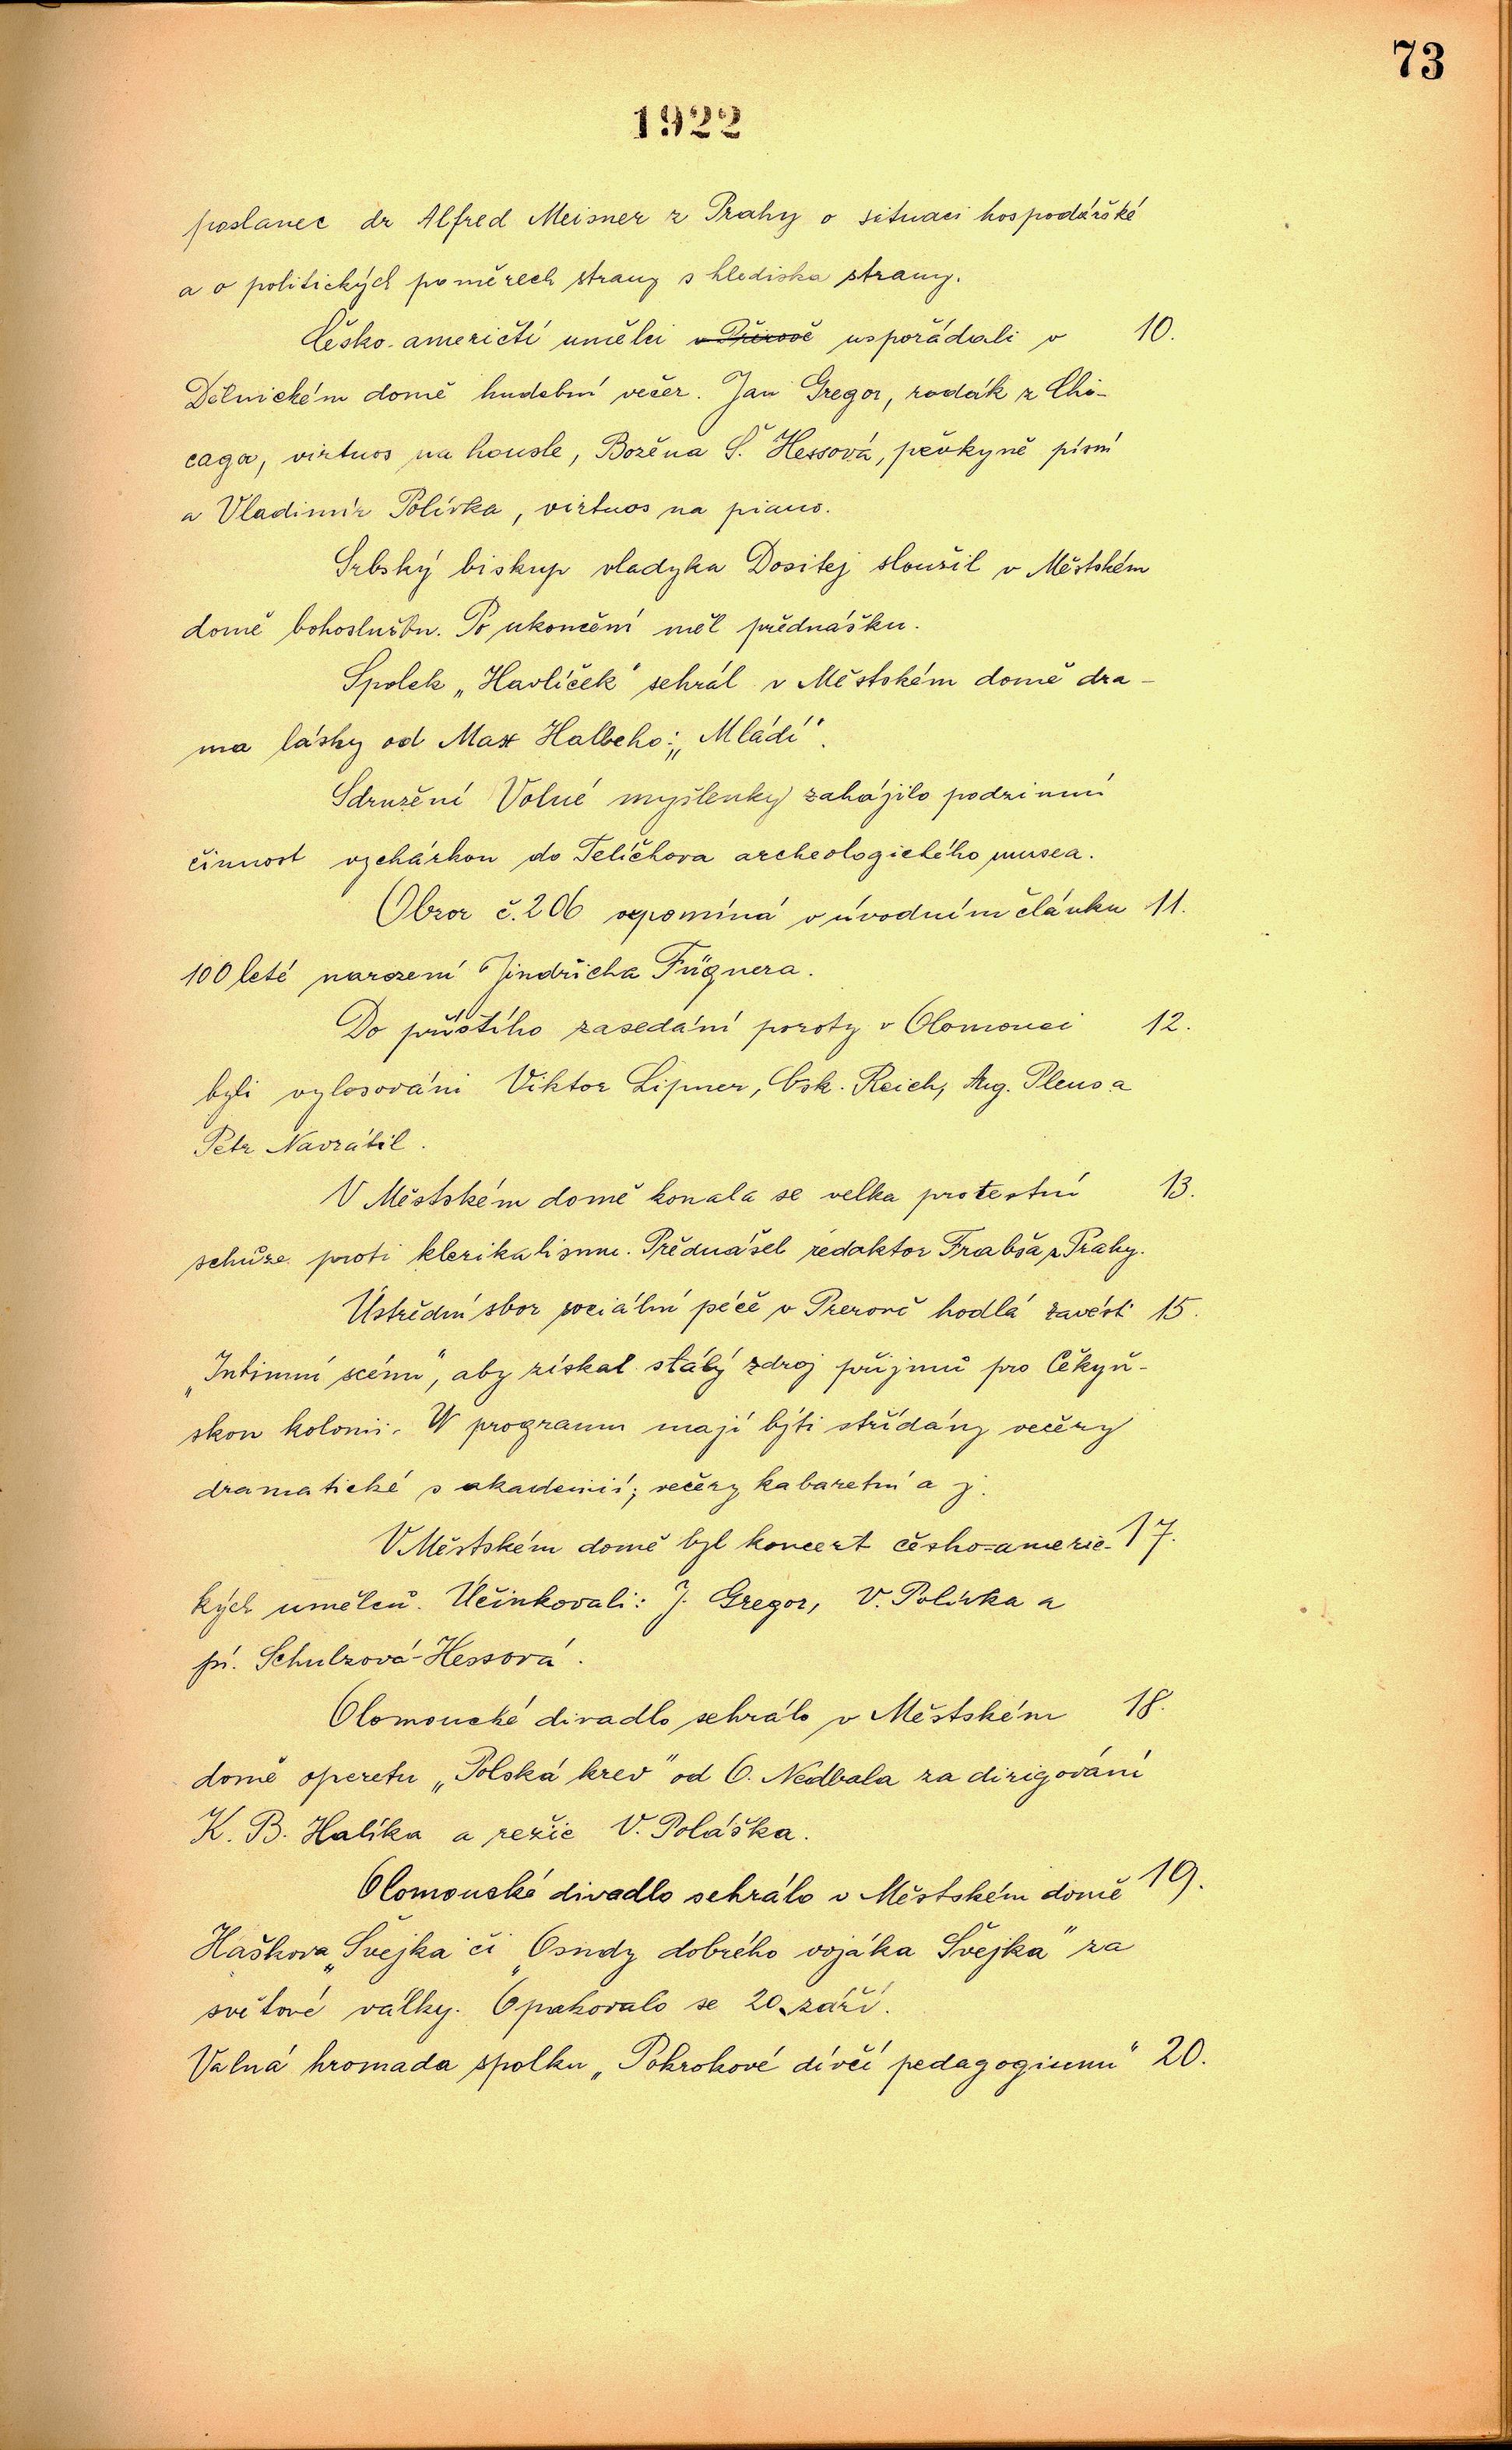 73
1922
poslanec dr Alfred Meisner z Prahy o situaci hospodářské
a o politických poměrech strany s hlediska strany.
Česko-američtí umělci v Přerově uspořádali v 10.
Dělnickém domě hudební večer. Jan Gregor, rodák z Chi-
caga, virtuos na housle, Božena Š. Hessová, pěvkyně písní
a Vladimír Polívka, virtuos na piano.
Srbský biskup vladyka Dositej sloužil v Městském
domě bohoslužbu. Po ukončení měl přednášku.
Spolek „Havlíček" sehrál v Městském domě dra-
ma lásky od Max Halbeho: „Mládí".
Sdružení Volné myšlenky zahájilo podzimní
činnost vycházkou do Teličkova archeologického musea.
Obzor č. 206 vzpomíná v úvodním článku 11.
100 leté narození Jindřicha Fügnera.
Do příštího zasedání poroty v Olomouci 12.
byli vylosováni Viktor Lipner, Osk. Reich, Aug. Plens a
Petr Navrátil.
V Městském domě konala se velka protestní 13.
schůze proti klerikalismu. Přednášel redaktor Frabša z Prahy.
Ústřední sbor sociální péče v Přerově hodlá zavésti 15.
„Intimní scénu", aby získal stálý zdroj příjmů pro Čekyň-
skou kolonii. V programu mají býti střídány večery
dramatické s akademií; večery kabaretní a j.
V Městském domě byl koncert česko=americ- 17.
kých umělců. Účinkovali: J. Gregor, V. Polívka a
pí. Schulzová-Hessová.
Olomoucké divadlo sehrálo v Městském 18.
domě operetu „Polská krev" od O. Nedbala za dirigování
K. B. Halíka a režie V. Poláška.
Olomoucké divadlo sehrálo v Městském domě 19.
Haškova „Švejka" či „Osudy dobrého vojáka Švejka" za
světové války. Opakovalo se 20. září.
Valná hromada spolku „Pokrokové dívčí pedagogium" 20.